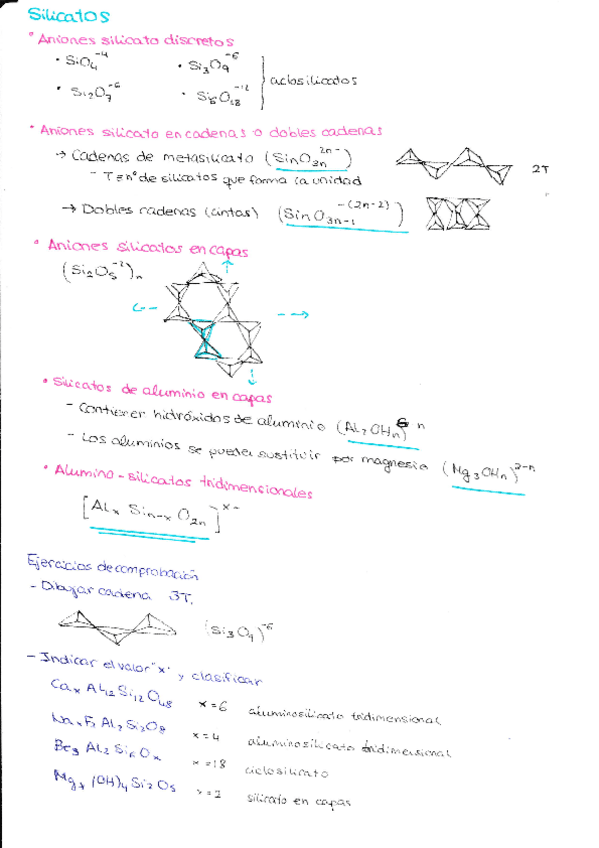 Silicatos
• Aniones silicato discretos
• SiO4^-4   • Si3O9^-6
• Si2O7^-6   • Si6O18^-12   } ciclosilicatos
• Aniones silicato en cadenas o dobles cadenas
→ Cadenas de metasilicato (SinO3n^2n-)   2T
- T ≡ nº de silicatos que forma la unidad
→ Dobles cadenas (cintas) (SinO3n-1^-(2n-2))
• Aniones silicatos en capas
(Si2O5^-2)n
• Silicatos de aluminio en capas
- Contienen hidróxidos de aluminio (Al2OHn)^6-n
- Los aluminios se pueden sustituir por magnesio (Mg3OHn)^2-n
• Alumino-silicatos tridimensionales
[Alx Sin-x O2n]^x-
Ejercicios de comprobación
- Dibujar cadena 3T.
(Si3O9)^-6
- Indicar el valor "x" y clasificar
Cax Al12 Si12 O48   x=6   aluminosilicato tridimensional
Al2 Si2O8   x=4   aluminosilicato tridimensional
Be3 Al2 Si6 Ox   x=18   ciclosilicato
(OH)4 Si2 O5   silicato en capas